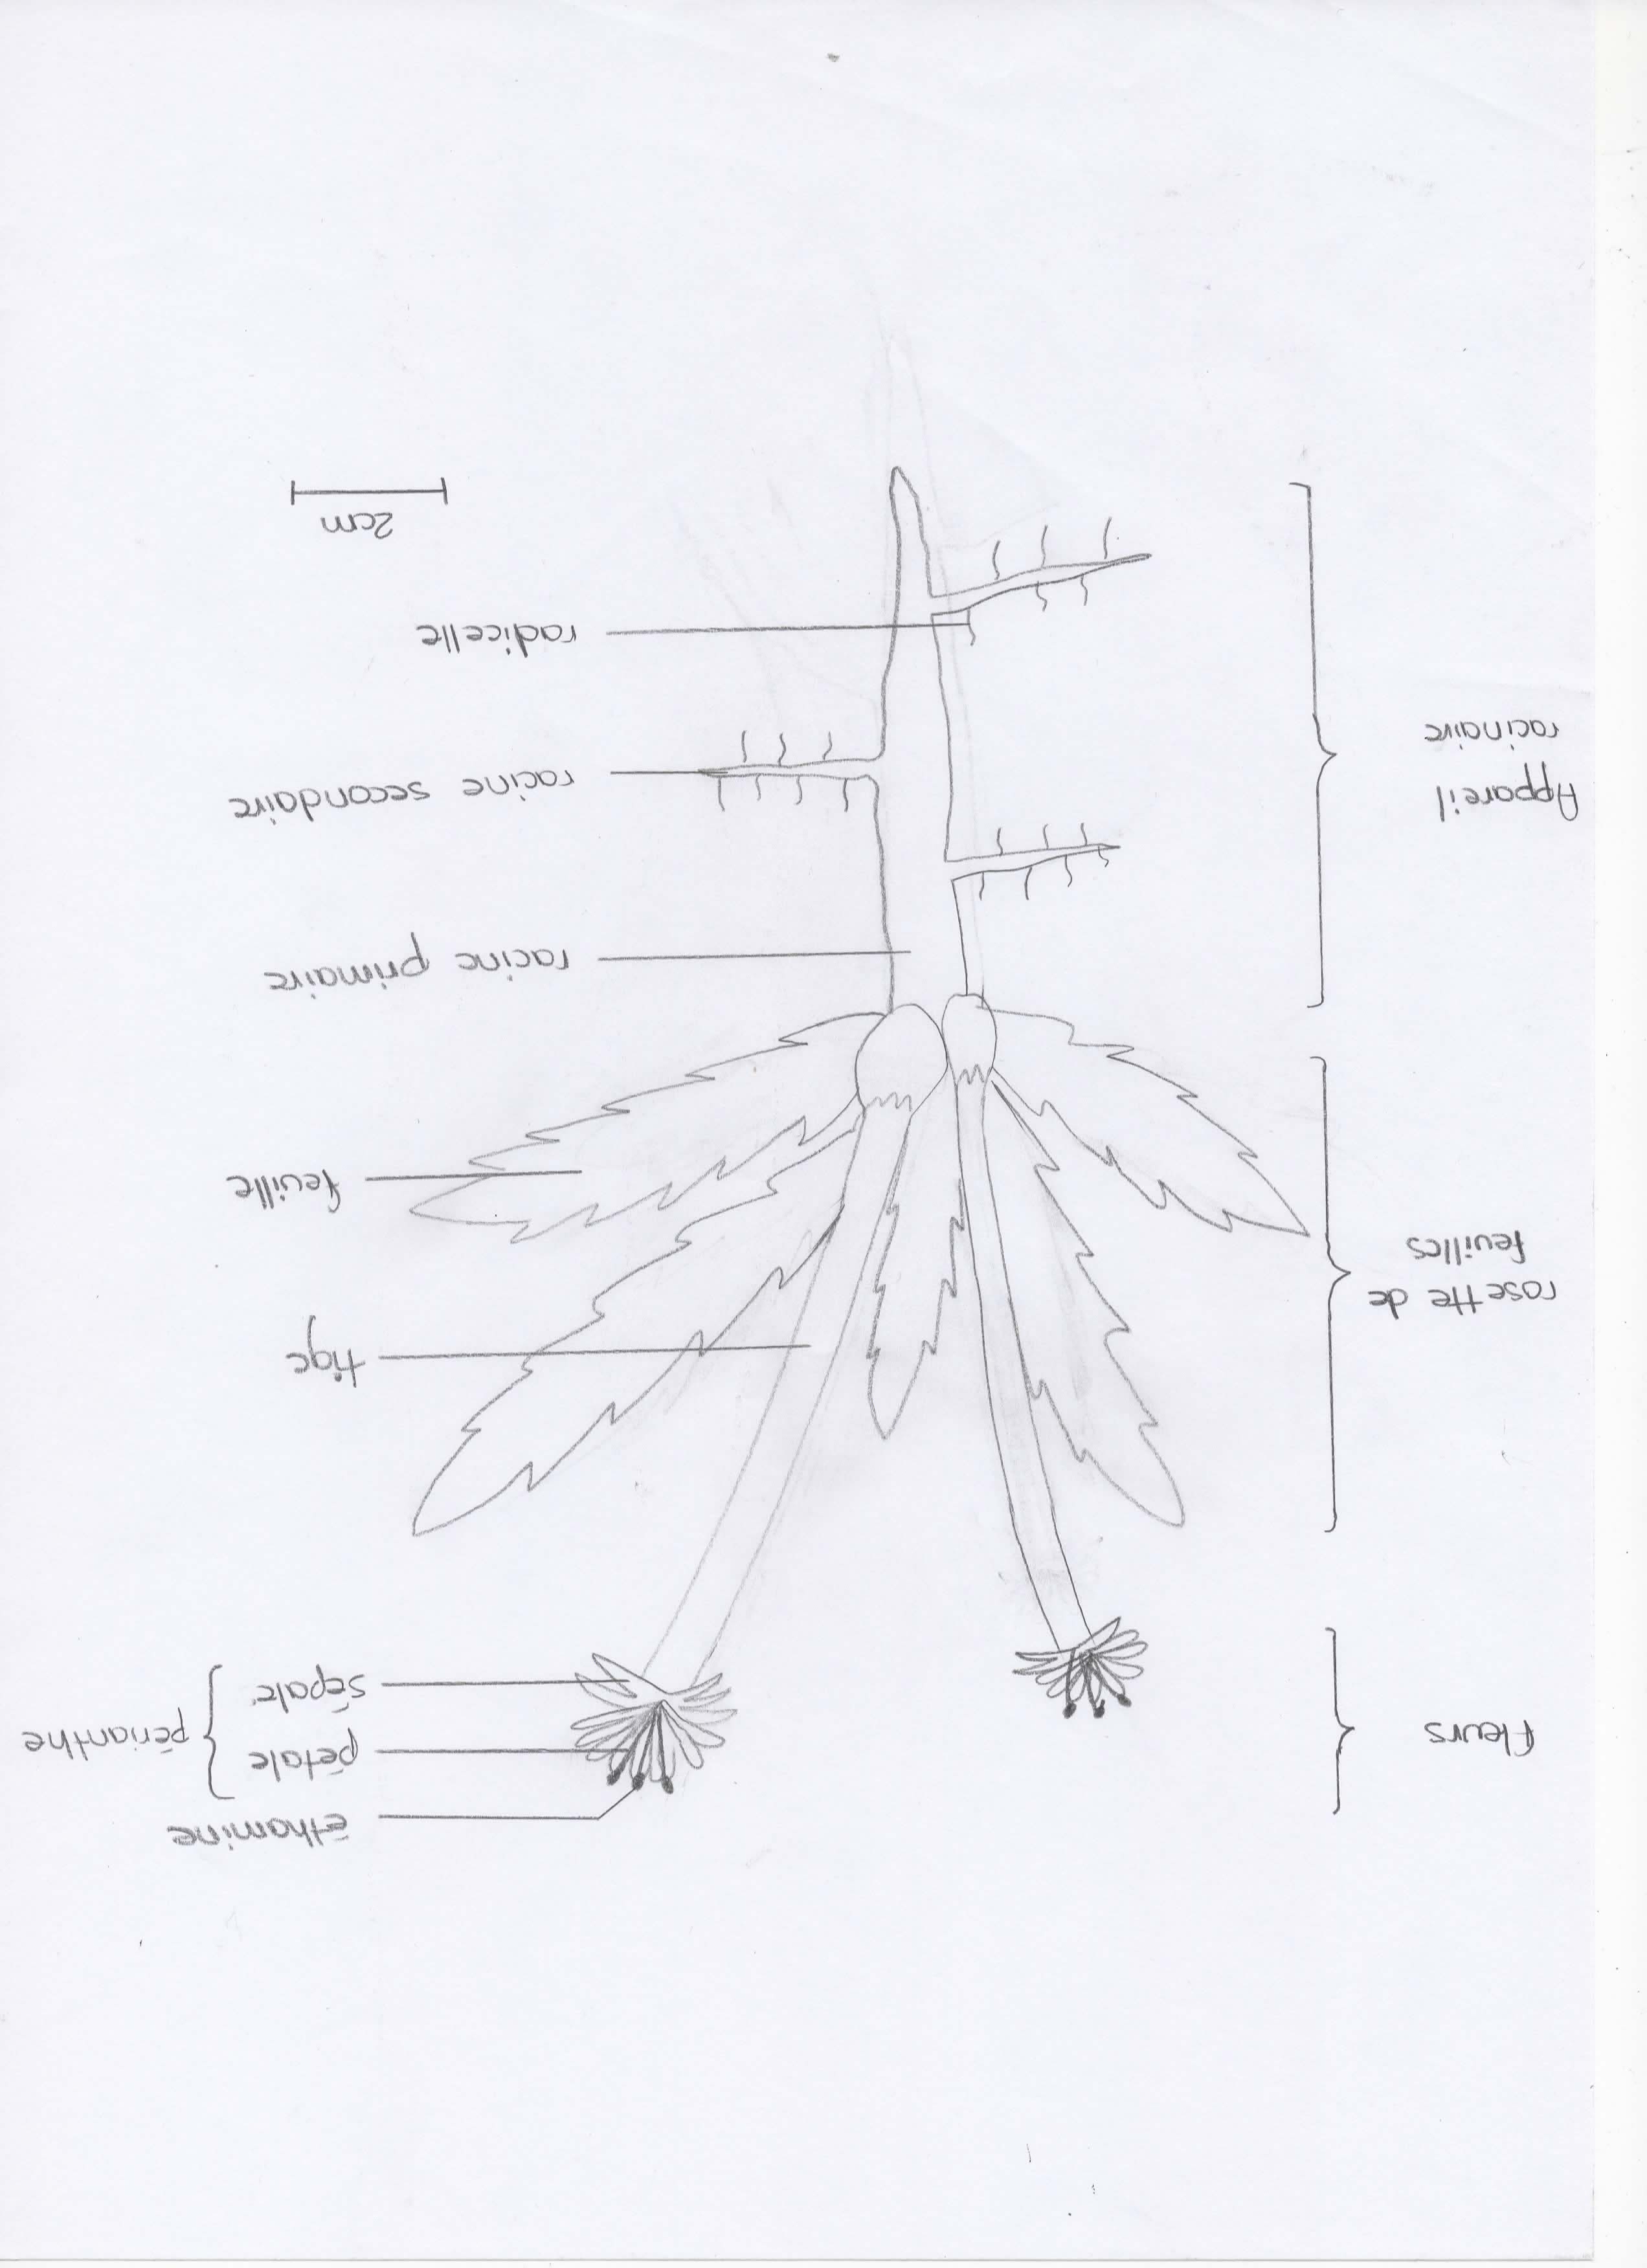 Fleurs
éthamine
pétale
sépale
périanthe
rosette de
feuilles
tige
feuille
Appareil
racinaire
racine primaire
racine secondaire
radicelle
2cm